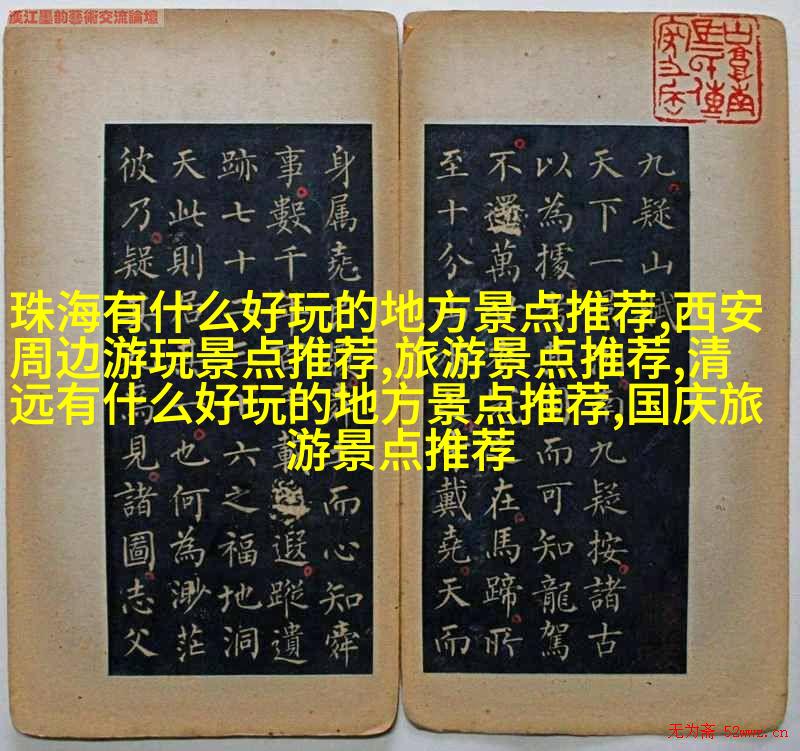 漢江墨韵藝術交流論壇
九疑山
天下一 九疑按諸古
以為據 而可知龍駕
不還萬 在馬蹄所
至十分 戴堯天而
身属堯 而心知舜
事數千 遐蹤遺
跡七十 六之福地洞
天此則 也何為渺茫
彼乃疑 見諸圖志父
珠海有什么好玩的地方景点推荐,西安
周边游玩景点推荐,旅游景点推荐,清
远有什么好玩的地方景点推荐,国庆旅
游景点推荐
无为斋 52wwz.cn